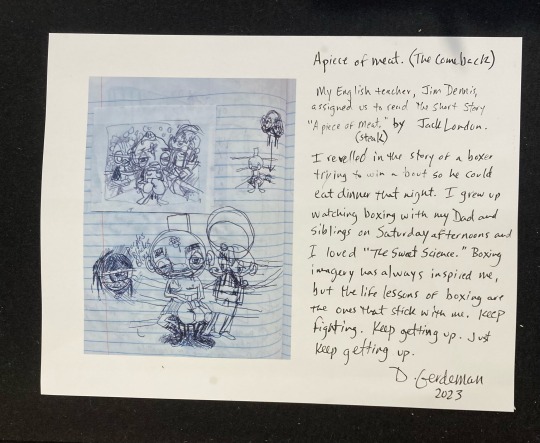 A piece of meat. (The Comeback)
My English teacher, Jim Dennis,
assigned us to read the short story
"A piece of meat." by Jack London.
(steak)
I revelled in the story of a boxer
trying to win a bout so he could
eat dinner that night. I grew up
watching boxing with my Dad and
siblings on Saturday afternoons and
I loved "The Sweet Science." Boxing
imagery has always inspired me,
but the life lessons of boxing are
the ones that stick with me. Keep
fighting. Keep getting up. Just
Keep getting up.
D. Gerdeman
2023